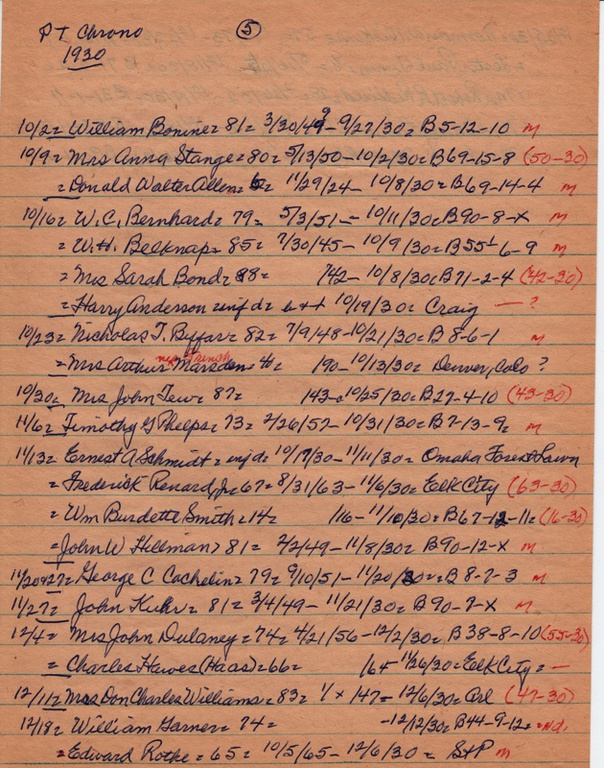 PT Chrono ⑤
1930
10/2= William Bonine= 81= 3/30/49-9/27/30= B5-12-10 m
10/9= Mrs Anna Stange=80= 5/13/50-10/2/30= B69-15-8 (50-30)
= Donald Walter Allen= 5= 11/29/24- 10/8/30=B69-14-4 m
10/16= W.C. Bernhard= 79= 5/3/51- 10/11/30=B90-8-x m
= W.H. Belknap= 85= 7/30/45- 10/9/30=B55½ 6-9 m
= Mrs Sarah Bond= 88= /42- 10/8/30=B71-2-4 (42-30)
= Harry Anderson inj d= b++ 10/19/30= Craig — ?
10/23= Nicholas T. Byfar= 82= 7/9/48-10/21/30= B8-6-1 m
nee French
= Mrs Arthur Marsden= 41= 190-10/13/30= Denver, Colo ?
10/30= Mrs John Tew= 87= 143-10/25/30=B27-4-10 (43-30)
11/6= Timothy G Phelps= 73= 2/26/57- 10/31/30= B7-13-9= m
11/13= Ernest A Schmidt= inj d= 10/7/30-11/11/30= Omaha Forest Lawn
= Frederick Renard Jr= 67= 8/31/63- 11/6/30= Elk City (63-30)
= Wm Burdette Smith=14= /16-11/10/30= B67-12-11= (16-30)
= John W Hillman= 81= 2/2/49- 11/8/30= B90-12-x m
11/20&27= George C Cachelin= 79= 9/10/51-11/20/30= B8-7-3 m
11/27= John Kuhr= 81= 3/4/49- 11/21/30= B90-7-x m
12/4= Mrs John Dulaney=74= 4/21/56-12/2/30= B38-8-10 (55-30)
= Charles Hawes (Haas)=66= 164- 11/26/30=Elk City= —
12/11= Mrs Don Charles Williams= 83= 1/x 147= 12/6/30= Arl (47-30)
12/18= William Garner= 74= -12/12/30=B44-9-12= =Nd.
= Edward Rothe= 65= 10/5/65- 12/6/30= StP m